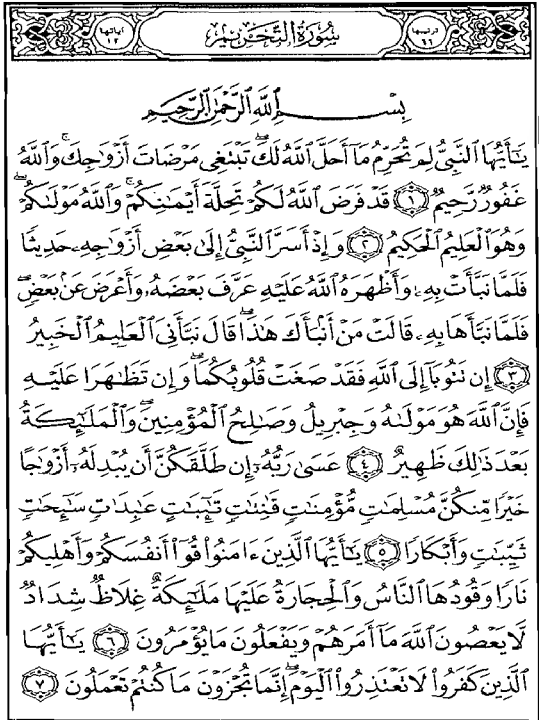 ترتيبها ٦٦ سُورَةُ التَّحْرِيمِ آياتها ١٢
بِسْمِ اللَّهِ الرَّحْمَٰنِ الرَّحِيمِ
يَٰٓأَيُّهَا ٱلنَّبِىُّ لِمَ تُحَرِّمُ مَآ أَحَلَّ ٱللَّهُ لَكَ ۖ تَبْتَغِى مَرْضَاتَ أَزْوَٰجِكَ ۚ وَٱللَّهُ
غَفُورٌ رَّحِيمٌ ﴿١﴾ قَدْ فَرَضَ ٱللَّهُ لَكُمْ تَحِلَّةَ أَيْمَٰنِكُمْ ۚ وَٱللَّهُ مَوْلَىٰكُمْ ۖ
وَهُوَ ٱلْعَلِيمُ ٱلْحَكِيمُ ﴿٢﴾ وَإِذْ أَسَرَّ ٱلنَّبِىُّ إِلَىٰ بَعْضِ أَزْوَٰجِهِۦ حَدِيثًا
فَلَمَّا نَبَّأَتْ بِهِۦ وَأَظْهَرَهُ ٱللَّهُ عَلَيْهِ عَرَّفَ بَعْضَهُۥ وَأَعْرَضَ عَنۢ بَعْضٍ ۖ
فَلَمَّا نَبَّأَهَا بِهِۦ قَالَتْ مَنْ أَنۢبَأَكَ هَٰذَا ۖ قَالَ نَبَّأَنِىَ ٱلْعَلِيمُ ٱلْخَبِيرُ
﴿٣﴾ إِن تَتُوبَآ إِلَى ٱللَّهِ فَقَدْ صَغَتْ قُلُوبُكُمَا ۖ وَإِن تَظَٰهَرَا عَلَيْهِ
فَإِنَّ ٱللَّهَ هُوَ مَوْلَىٰهُ وَجِبْرِيلُ وَصَٰلِحُ ٱلْمُؤْمِنِينَ ۖ وَٱلْمَلَٰٓئِكَةُ
بَعْدَ ذَٰلِكَ ظَهِيرٌ ﴿٤﴾ عَسَىٰ رَبُّهُۥٓ إِن طَلَّقَكُنَّ أَن يُبْدِلَهُۥٓ أَزْوَٰجًا
خَيْرًا مِّنكُنَّ مُسْلِمَٰتٍ مُّؤْمِنَٰتٍ قَٰنِتَٰتٍ تَٰٓئِبَٰتٍ عَٰبِدَٰتٍ سَٰٓئِحَٰتٍ
ثَيِّبَٰتٍ وَأَبْكَارًا ﴿٥﴾ يَٰٓأَيُّهَا ٱلَّذِينَ ءَامَنُوا۟ قُوٓا۟ أَنفُسَكُمْ وَأَهْلِيكُمْ
نَارًا وَقُودُهَا ٱلنَّاسُ وَٱلْحِجَارَةُ عَلَيْهَا مَلَٰٓئِكَةٌ غِلَاظٌ شِدَادٌ
لَّا يَعْصُونَ ٱللَّهَ مَآ أَمَرَهُمْ وَيَفْعَلُونَ مَا يُؤْمَرُونَ ﴿٦﴾ يَٰٓأَيُّهَا
ٱلَّذِينَ كَفَرُوا۟ لَا تَعْتَذِرُوا۟ ٱلْيَوْمَ ۖ إِنَّمَا تُجْزَوْنَ مَا كُنتُمْ تَعْمَلُونَ ﴿٧﴾